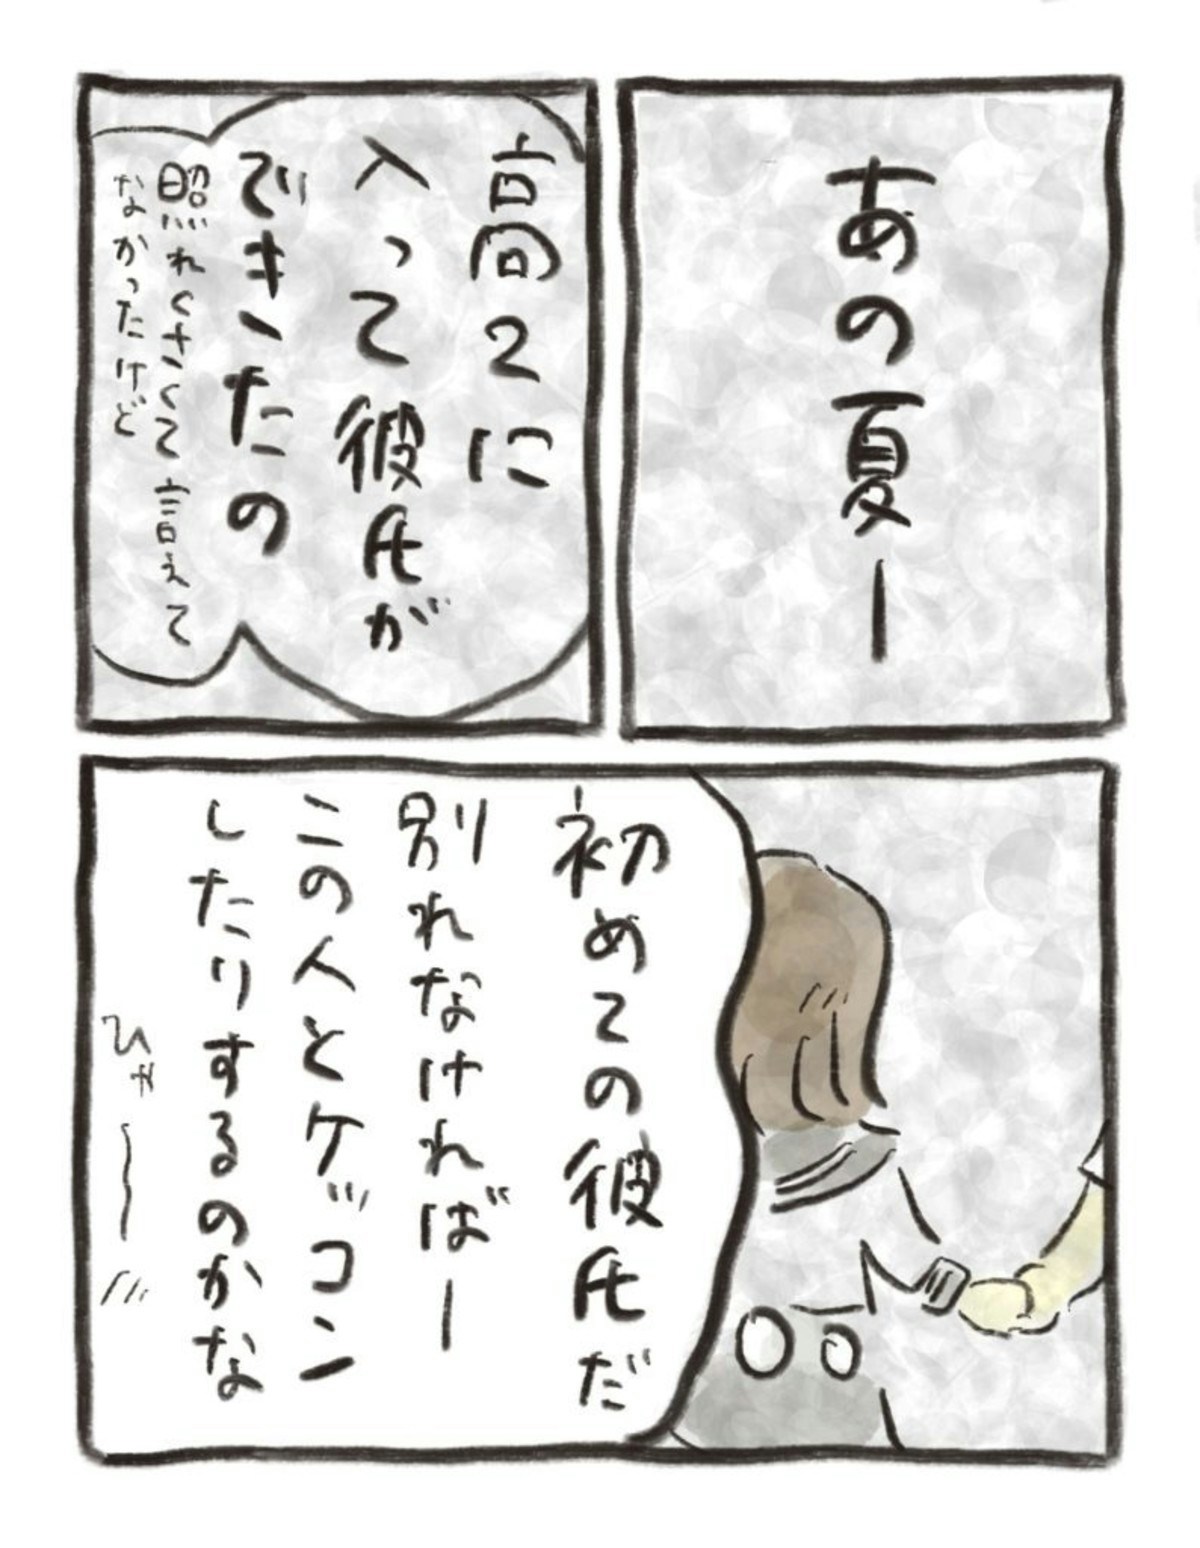 あの夏ー
高2に
入って彼氏が
できたの
照れくさくて言えて
なかったけど
初めての彼氏だ
別れなければー
この人とケッコン
したりするのかな
ひゃー